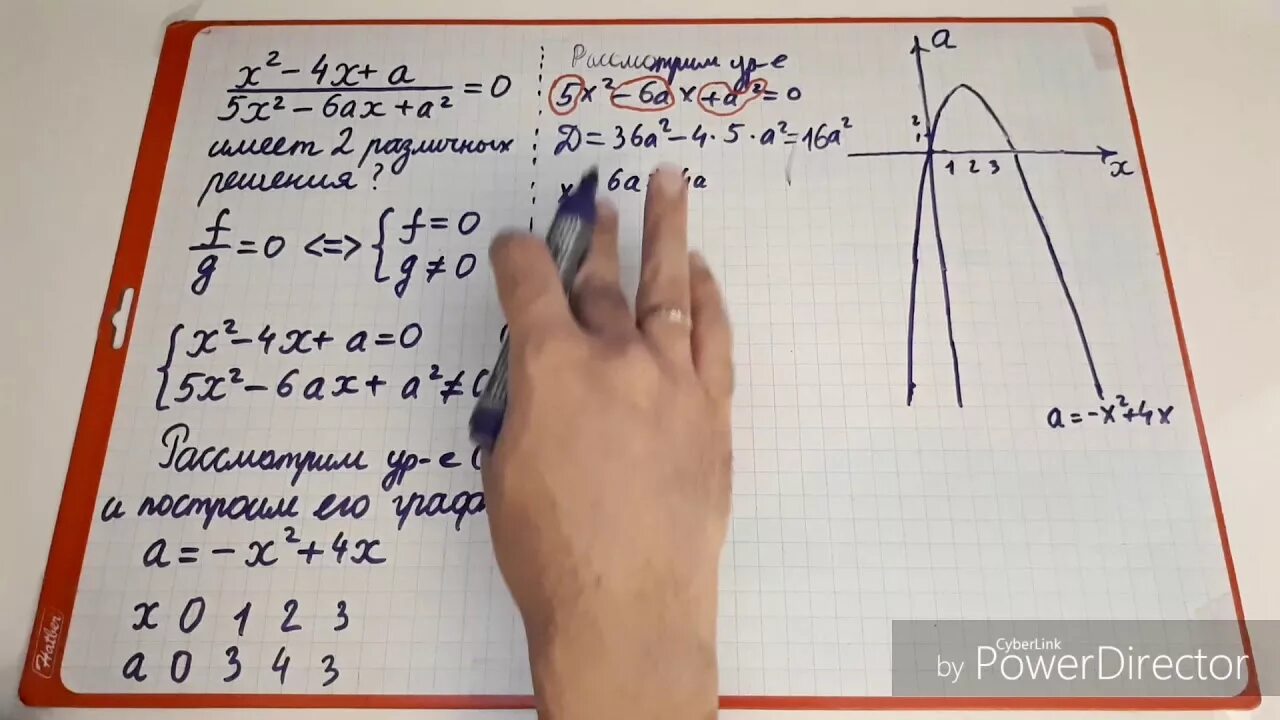 x² - 4x + a
5x² - 6ax + a² = 0
имеет 2 различных
решения?
f/g = 0 <=> { f = 0
g ≠ 0
{ x² - 4x + a = 0
5x² - 6ax + a² ≠
Рассмотрим ур-е
и построим его
a = -x² + 4x
x 0 1 2 3
a 0 3 4 3
Рассмотрим ур-е
5x² - 6ax + a² = 0
D = 36a² - 4 · 5 · a² = 16a²
6a
a
2
1
1 2 3
x
a = -x² + 4x
Hatber
CyberLink
by PowerDirector